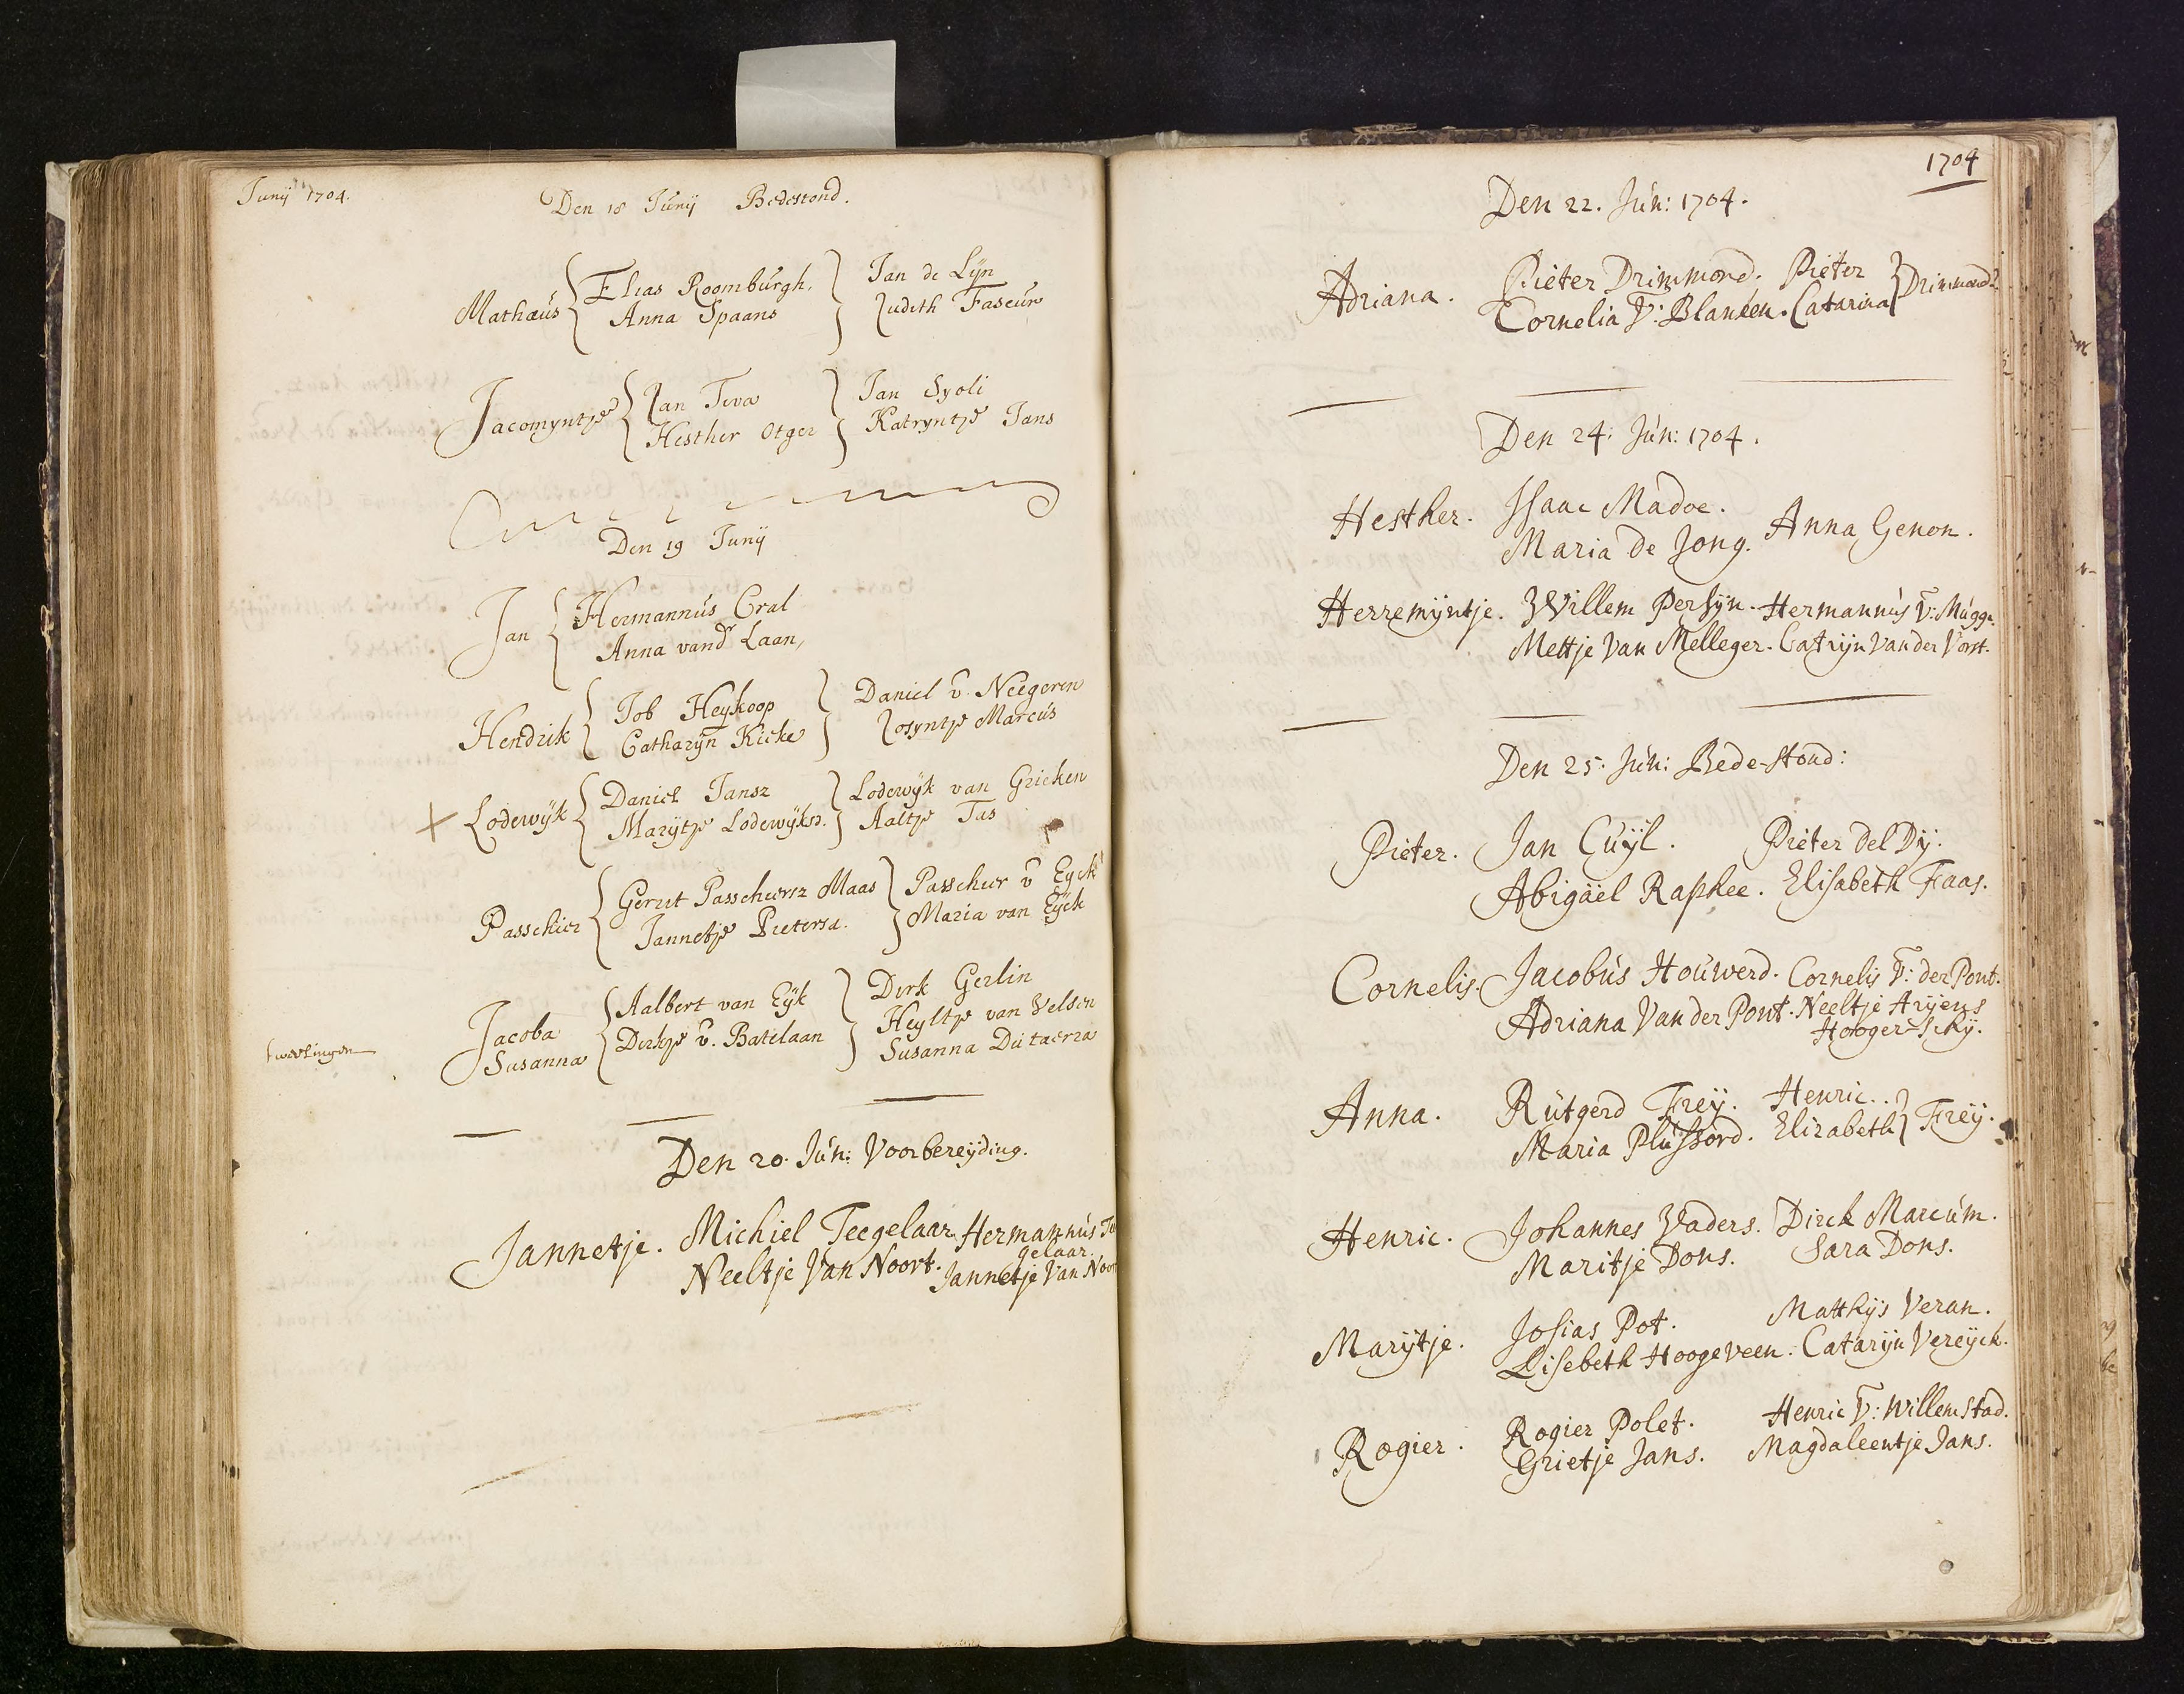 Junij 1704.
Den 18 Junij Bedestond.
Mathæus { Elias Roomburgh. } Jan de Lijn
Anna Spaans Judith Faseur
Jacomyntje { Jan Teva } Jan Syoli
Hesther Otger Katryntje Jans
Den 19 Junij
Jan { Hermannus Cral
Anna vandr Laan,
Hendrik { Job Heykoop } Daniel v. Neegeren
Catharijn Kieke Josyntje Marcus
+ Lodewyk { Daniel Jansz } Lodewyk van Grieken
Marijtje Lodewyksd. Aaltje Tas
Passchier { Gerrit Passchiersz Maas } Passchier v Eyck
Jannetje Pietersd. Maria van Eyck
Jacoba { Aalbert van Eyk } Dirk Gerlin
Susanna Dirkje v. Batelaan Heyltje van Velsen
tweelingen Susanna Dutaerra
Den 20. Jun: Voorbereijding.
Jannetje. Michiel Teegelaar. Hermannus Te
gelaar.
Neeltje Van Noort. Jannetje Van Noor
1704
Den 22. Jun: 1704.
Adriana. Pieter Drimmond. Pieter } Drimmond
Cornelia V: Blanken. Catarina
Den 24: Jun: 1704.
Hesther. Isaac Madoe.
Maria de Jong. Anna Genon.
Herremijntje. Willem Persijn. Hermannus V: Mugge.
Mettje Van Melleger. Catrijn Van der Vorst.
Den 25. Jun: Bede-stond:
Pieter. Jan Cuijl. Pieter del Dij.
Abigaël Raphee. Elisabeth Faas.
Cornelis. Jacobus Houwerd. Cornelis V: der Pout.
Adriana Van der Pout. Neeltje Arijens
Hooger-Schij.
Anna. Rutgerd Freij. Henric.. } Freij.
Maria Plussord. Elizabeth
Henric. Johannes Vaders. Dirck Marcum.
Maritje Dons. Sara Dons.
Marijtje. Josias Pot. Matthijs Veran.
Lisebeth Hoogeveen. Catarijn Vereijck.
Rogier. Rogier Polet. Henric V: Willemstad.
Grietje Jans. Magdaleentje Jans.